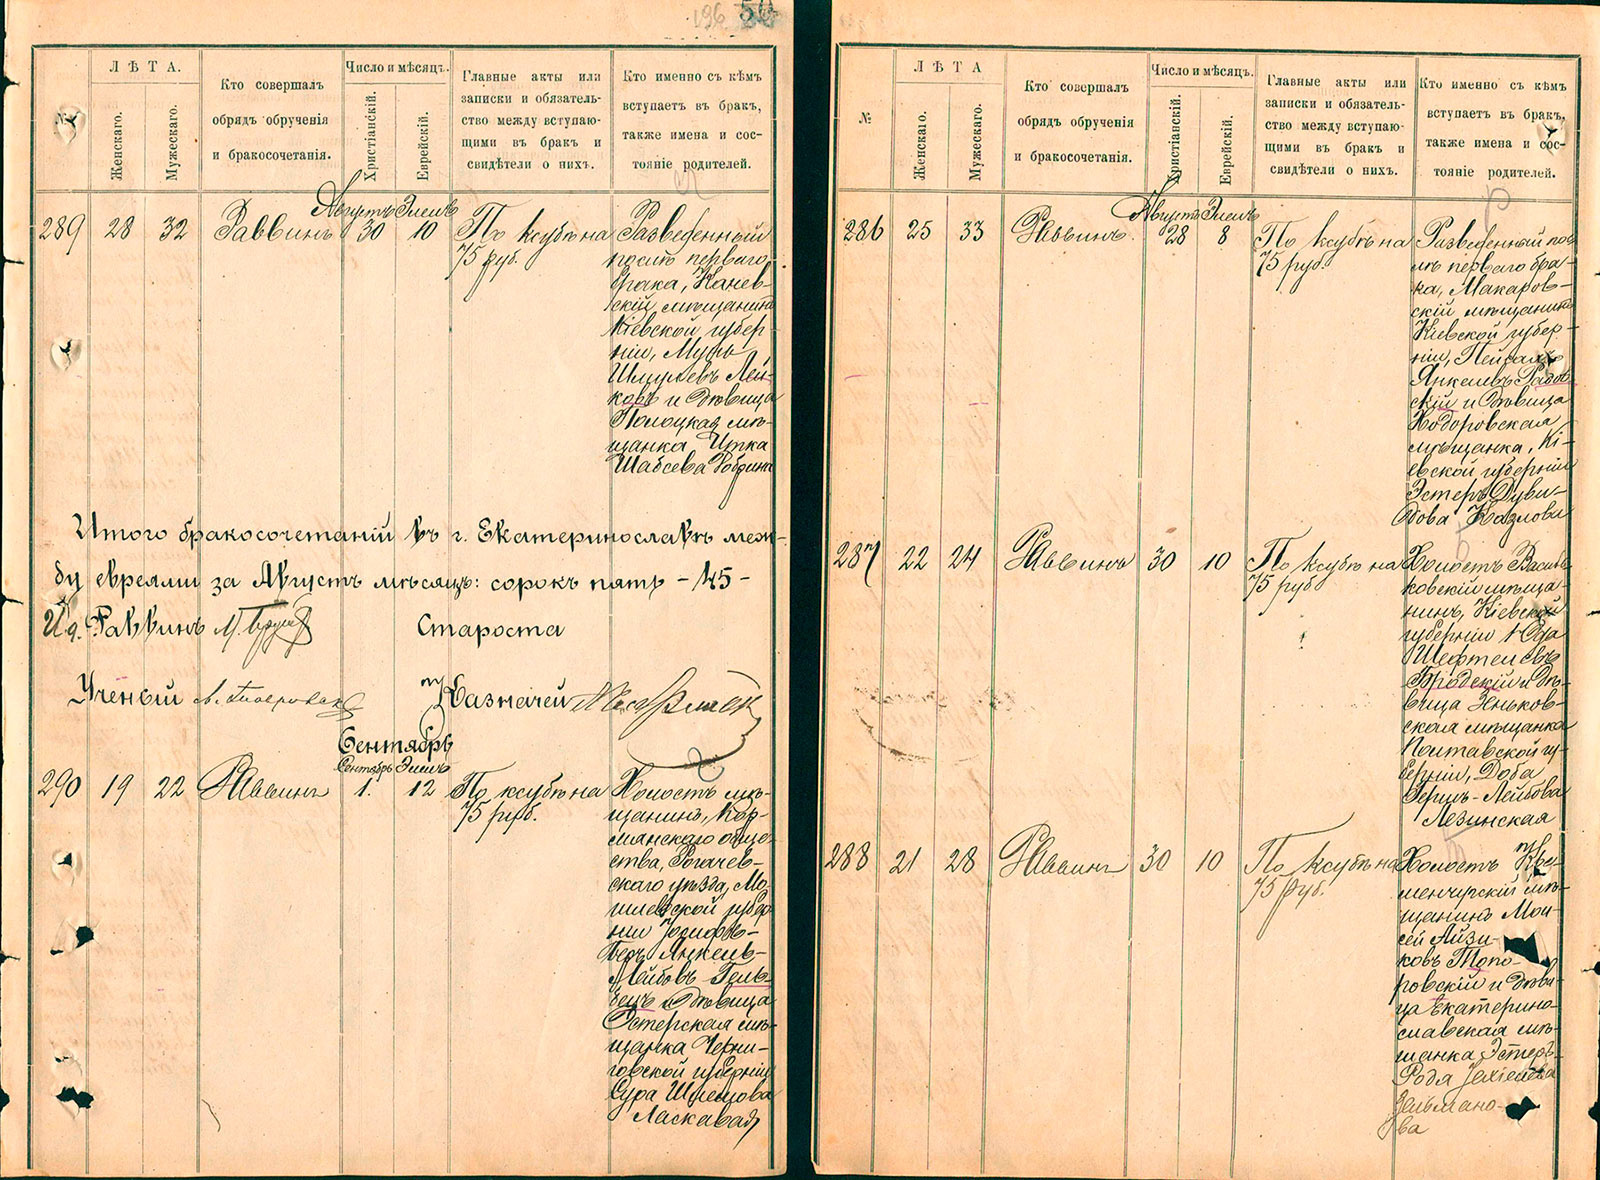 196 50
ЛѢТА.
Женскаго.
Мужескаго.
Кто совершалъ
обрядъ обрученія
и бракосочетанія.
Число и мѣсяцъ.
Христіанскій.
Еврейскій.
Главные акты или
записки и обязатель-
ство между вступаю-
щими въ бракъ и
свидѣтели о нихъ.
Кто именно съ кѣмъ
вступаетъ въ бракъ,
также имена и сос-
тояніе родителей.
Августъ Элелъ
289 28 32 Раввинъ 30 10 По ксубѣ на
75 руб.
Разведенный
послѣ перваго
брака, Канев-
скій мѣщанинъ
Кіевской губер
ніи,
Шмулевъ Лей-
ковъ и дѣвица
Полоцкая мѣ-
щанка Итка
Шабсева
Итого бракосочетаній въ г. Екатеринославѣ меж-
ду евреями за Августъ мѣсяцъ: сорокъ пять - 45 -
И. д. Раввинъ
Староста
Ученый
Казначей
Сентябрь
Сентябрь Элелъ
290 19 22 Раввинъ 1. 12 По ксубѣ на
75 руб.
Холостъ мѣ-
щанинъ, Кор-
мянскаго обще-
ства, Рогачев-
скаго уѣзда, Мо-
гилевской губер
ніи Іосифъ-
Беръ Янкель-
Лейбовъ Гель-
и дѣвица
Остерская мѣ-
щанка Черни-
говской губерніи
Сура Шлемова
Ласкавая
№
ЛѢТА
Женскаго.
Мужескаго.
Кто совершалъ
обрядъ обрученія
и бракосочетанія.
Число и мѣсяцъ.
Христіанскій.
Еврейскій.
Главные акты или
записки и обязатель-
ство между вступаю-
щими въ бракъ и
свидѣтели о нихъ.
Кто именно съ кѣмъ
вступаетъ въ бракъ,
также имена и сос-
тояніе родителей.
Августъ Элелъ
286 25 33 Раввинъ 28 8 По ксубѣ на
75 руб.
Разведенный пос
лѣ перваго бра-
ка, Макаров-
скій мѣщанинъ
Кіевской губер-
ніи, Пейсахъ
Янкелевъ Радов
скій и дѣвица
Ходоровская
мѣщанка, Кі-
евской губерніи
Эстеръ Дуви-
дова Казлова
287 22 24 Раввинъ 30 10 По ксубѣ на
75 руб
Холостъ Василь
ковскій мѣща
нинъ, Кіевской
губерніи
Шефтелевъ
Бродскій и дѣ-
вица Зеньков-
ская мѣщанка
Полтавской гу-
берніи, Доба
Герцъ-Лейбова
Лезинская
288 21 28 Раввинъ 30 10 По ксубѣ на
75 руб.
Холостъ Кре-
менчугскій мѣ-
щанинъ Мои-
сей Айзи-
ковъ Топо-
ровскій и дѣви-
ца Екатерино-
славская мѣ-
щанка Эстеръ-
Рода Іехіелева
Зельмано-
ва